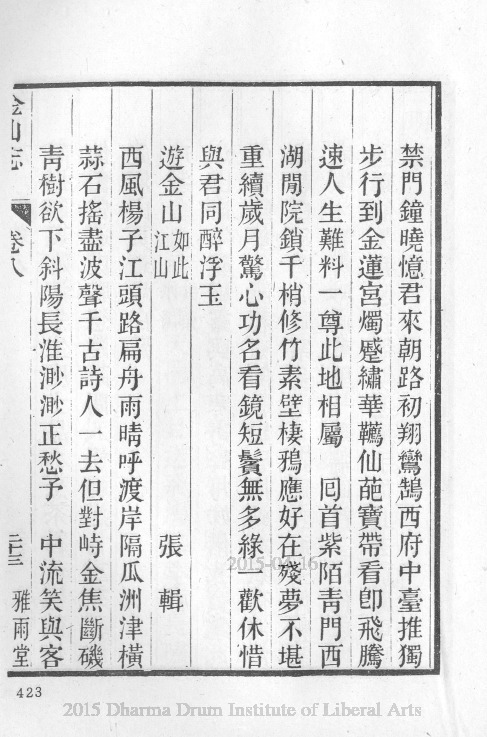 禁門鐘曉憶君來朝路初翔鸞鵠西府中臺推獨
步行到金蓮宮燭蹙繡華韉仙葩寶帶看卽飛騰
速人生難料一尊此地相屬　囘首紫陌靑門西
湖閒院鎖千梢修竹素壁棲鴉應好在殘夢不堪
重續歲月驚心功名看鏡短鬢無多綠一歡休惜
與君同醉浮玉
遊金山如此江山　張輯
西風楊子江頭路扁舟雨晴呼渡岸隔瓜洲津橫
蒜石搖盡波聲千古詩人一去但對峙金焦斷磯
靑樹欲下斜陽長淮渺渺正愁予　中流笑與客
金山志　卷八　二十三　雅雨堂
423
2015 Dharma Drum Institute of Liberal Arts